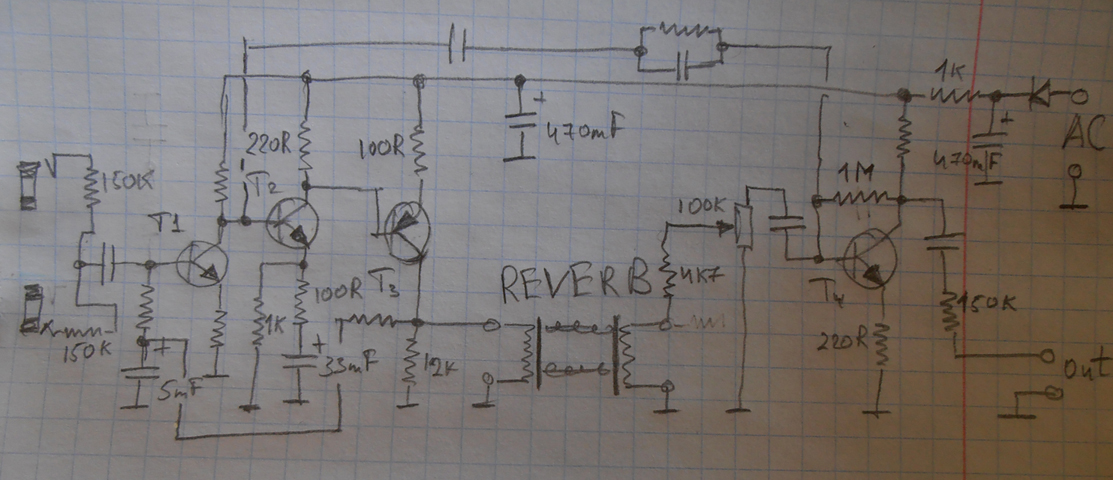 1K
AC
470mF
470mF
220R
100R
150K
T2
T1
1M
100K
REVERB
4K7
T3
T4
100R
1K
33mF
12K
150K
5mF
220R
150K
out